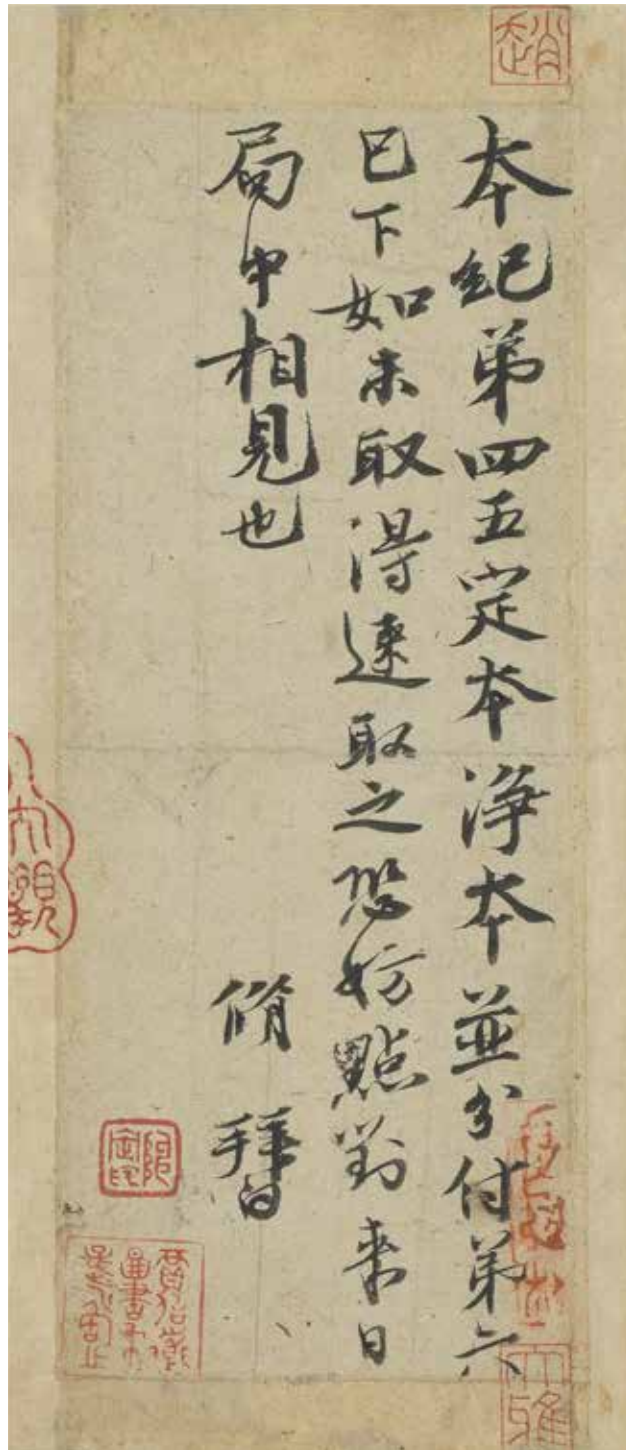 趙
本紀弟四五定本淨本並分付弟六
已下如未取得速取之恐妨點對来日
局中相見也
脩拜白
大雅